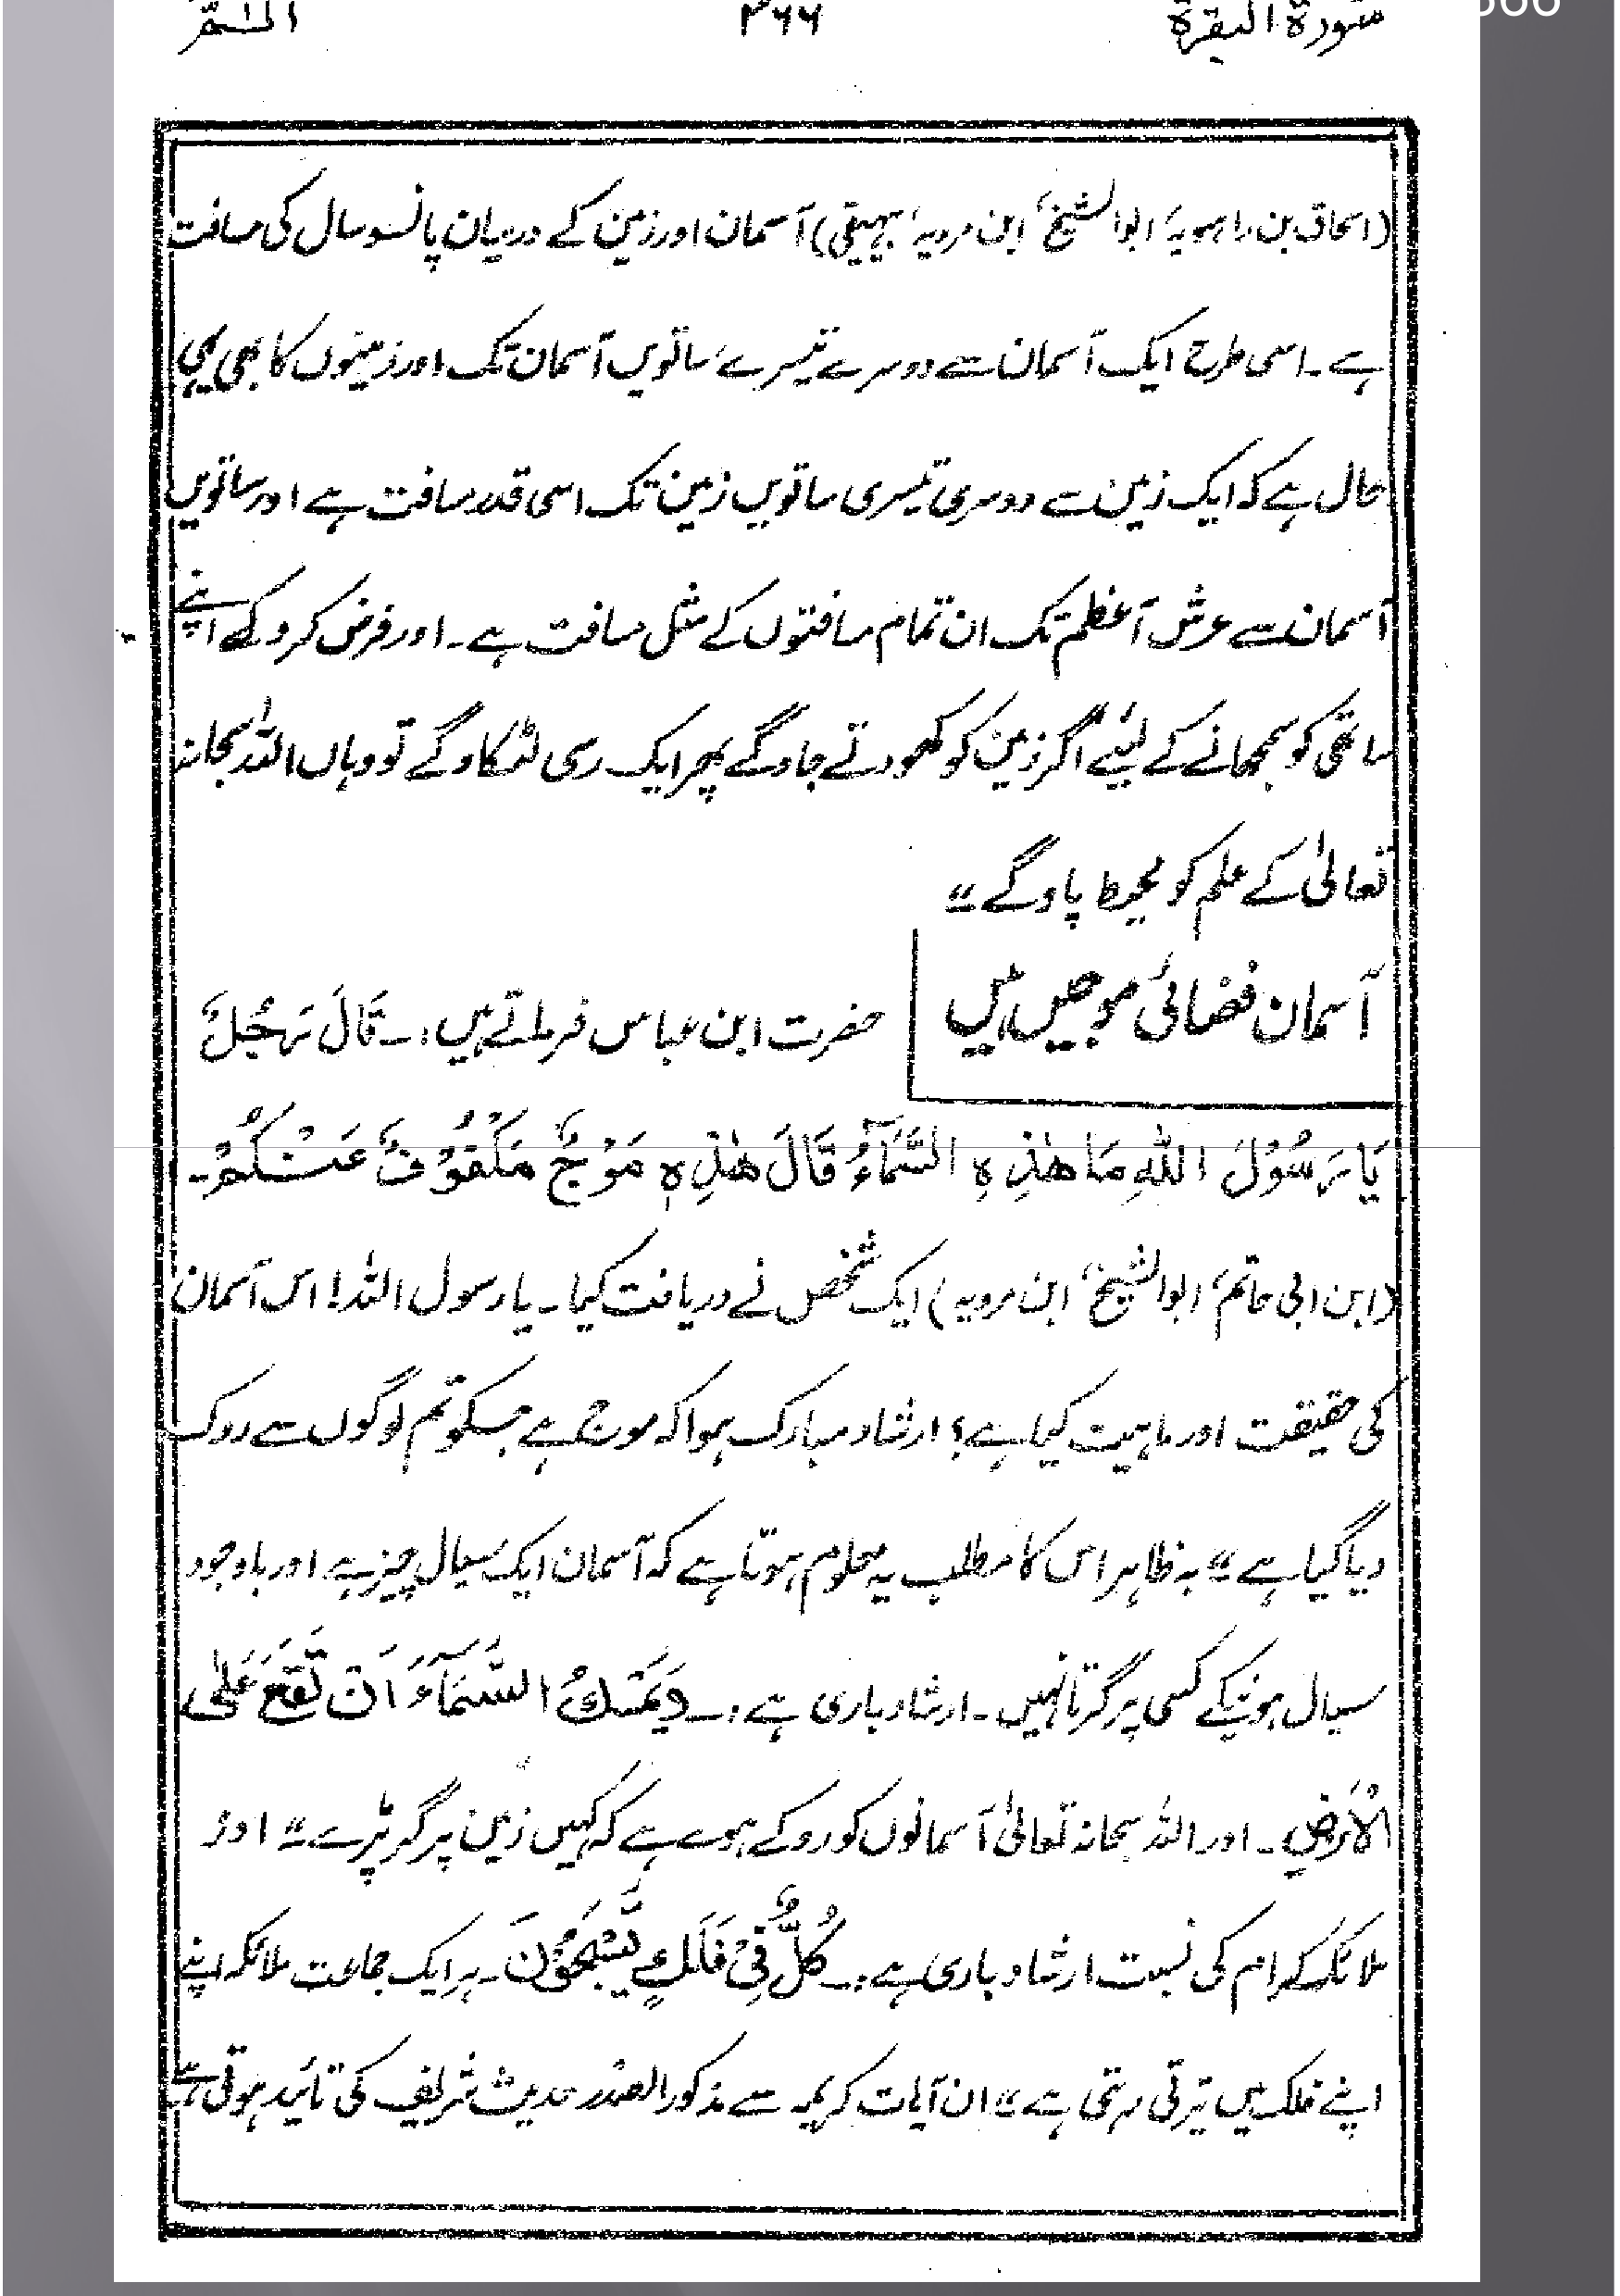 سورۃ البقرۃ ۳۶۶ الٓمّٓ
(اسحاق بن راہویہ، ابوالشیخ، ابن مردویہ، بیہقی) آسمان اور زمین کے درمیان پانسو سال کی مسافت
ہے۔ اسی طرح ایک آسمان سے دوسرے تیسرے، ساتویں آسمان تک اور زمینوں کا بھی یہی
حال ہے کہ ایک زمین سے دوسری تیسری ساتویں زمین تک اسی قدر مسافت ہے اور ساتویں
آسمان سے عرش آعظم تک ان تمام مسافتوں کے مثل مسافت ہے۔ اور فرض کرو کے اپنے
ساتھی کو سمجھانے کے لیئے اگر زمین کو کھودتے جاوگے پھر ایک رسی لٹکاوگے تو وہاں اللہ سبحانہ
تعالیٰ کے علم کو محیط پاوگے"
آسمان فضائی موجیں ہیں
حضرت ابن عباس فرماتے ہیں:۔ قَالَ رَجُلٌ
يَا رَسُوْلَ اللّٰهِ مَا هٰذِهِ السَّمَآءُ قَالَ هٰذِهٖ مَوْجٌ مَكْفُوْفٌ عَنْكُمْ۔
(ابن ابی حاتم، ابوالشیخ، ابن مردویہ) ایک شخص نے دریافت کیا۔ یا رسول اللہ! اس آسمان
کی حقیقت اور ماہیت کیا ہے؟ ارشاد مبارک ہوا کہ موج ہے جسکو تم لوگوں سے روک
دیا گیا ہے" بہ ظاہر اس کا مطلب یہ معلوم ہوتا ہے کہ آسمان ایک سیال چیز ہے اور باوجود
سیال ہونیکے کسی پر گرتا نہیں۔ ارشاد باری ہے:۔ وَيُمْسِكُ السَّمَآءَ اَنْ تَقَعَ عَلَى
الْاَرْضِ۔ اور اللہ سبحانہ تعالیٰ آسمانوں کو روکے ہوے ہے کہ کہیں زمین پر گر پڑے" اور
ملائکہ کرام کی نسبت ارشاد باری ہے:۔ كُلٌّ فِيْ فَلَكٍ يَّسْبَحُوْنَ۔ ہر ایک جماعت ملائکہ اپنے
اپنے فلک میں تیرتی رہتی ہے" ان آیات کریمہ سے مذکور الصدر حدیث شریف کی تائید ہوتی ہے